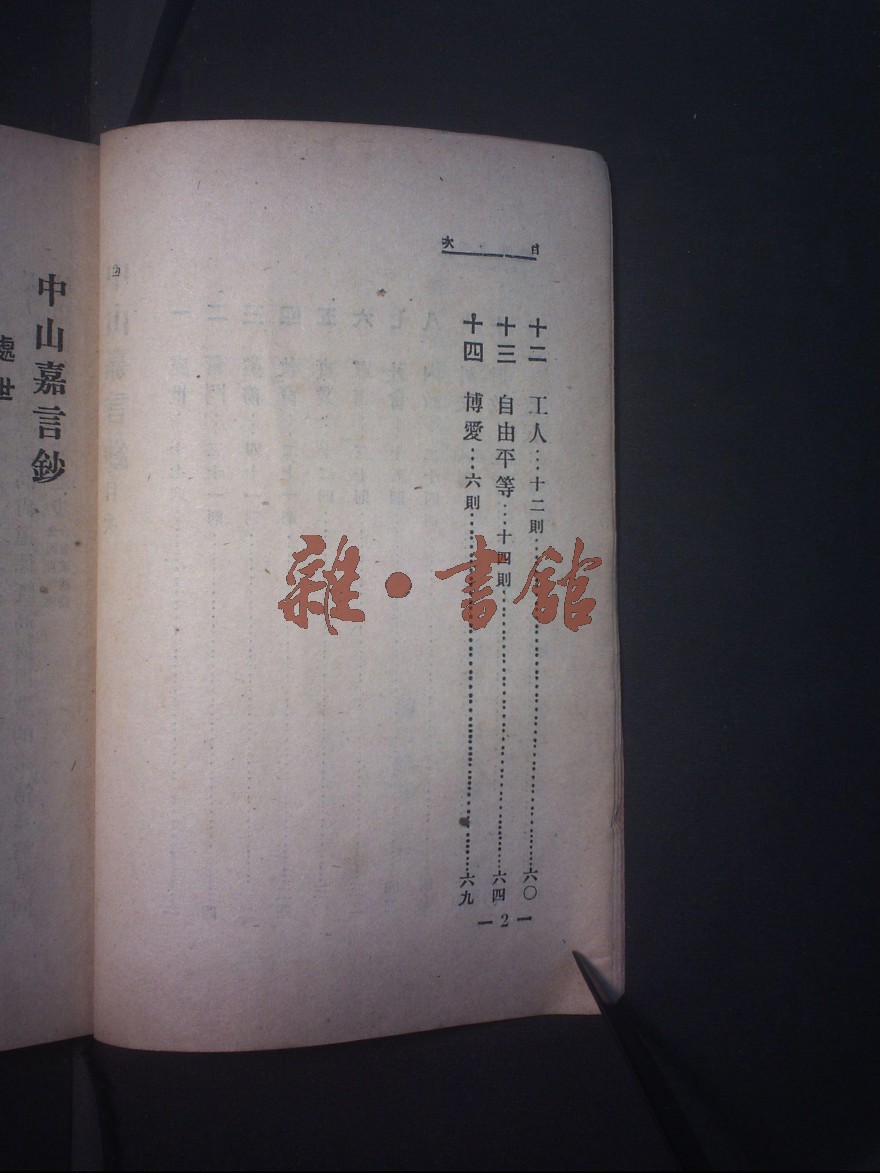 目次
十二　工人…十二則…六〇
十三　自由平等…十四則…六四
十四　博愛…六則…六九
—2—
中山嘉言鈔
處世
雜·書館